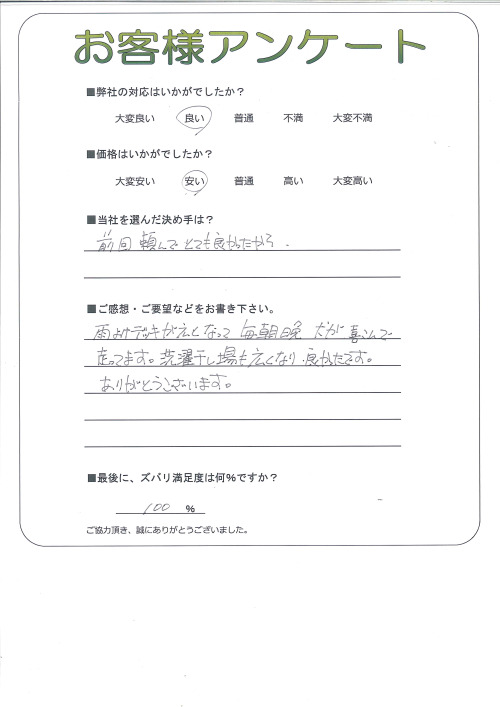 お客様アンケート
■弊社の対応はいかがでしたか？
大変良い 良い 普通 不満 大変不満
■価格はいかがでしたか？
大変安い 安い 普通 高い 大変高い
■当社を選んだ決め手は？
前回頼んでとても良かったから.
■ご感想・ご要望などをお書き下さい。
雨よけデッキが広くなって 毎朝晩 犬が 喜んで
走ってます。洗濯干し場も広くなり.良かったです。
ありがとうございます。
■最後に、ズバリ満足度は何%ですか？
100 %
ご協力頂き、誠にありがとうございました。